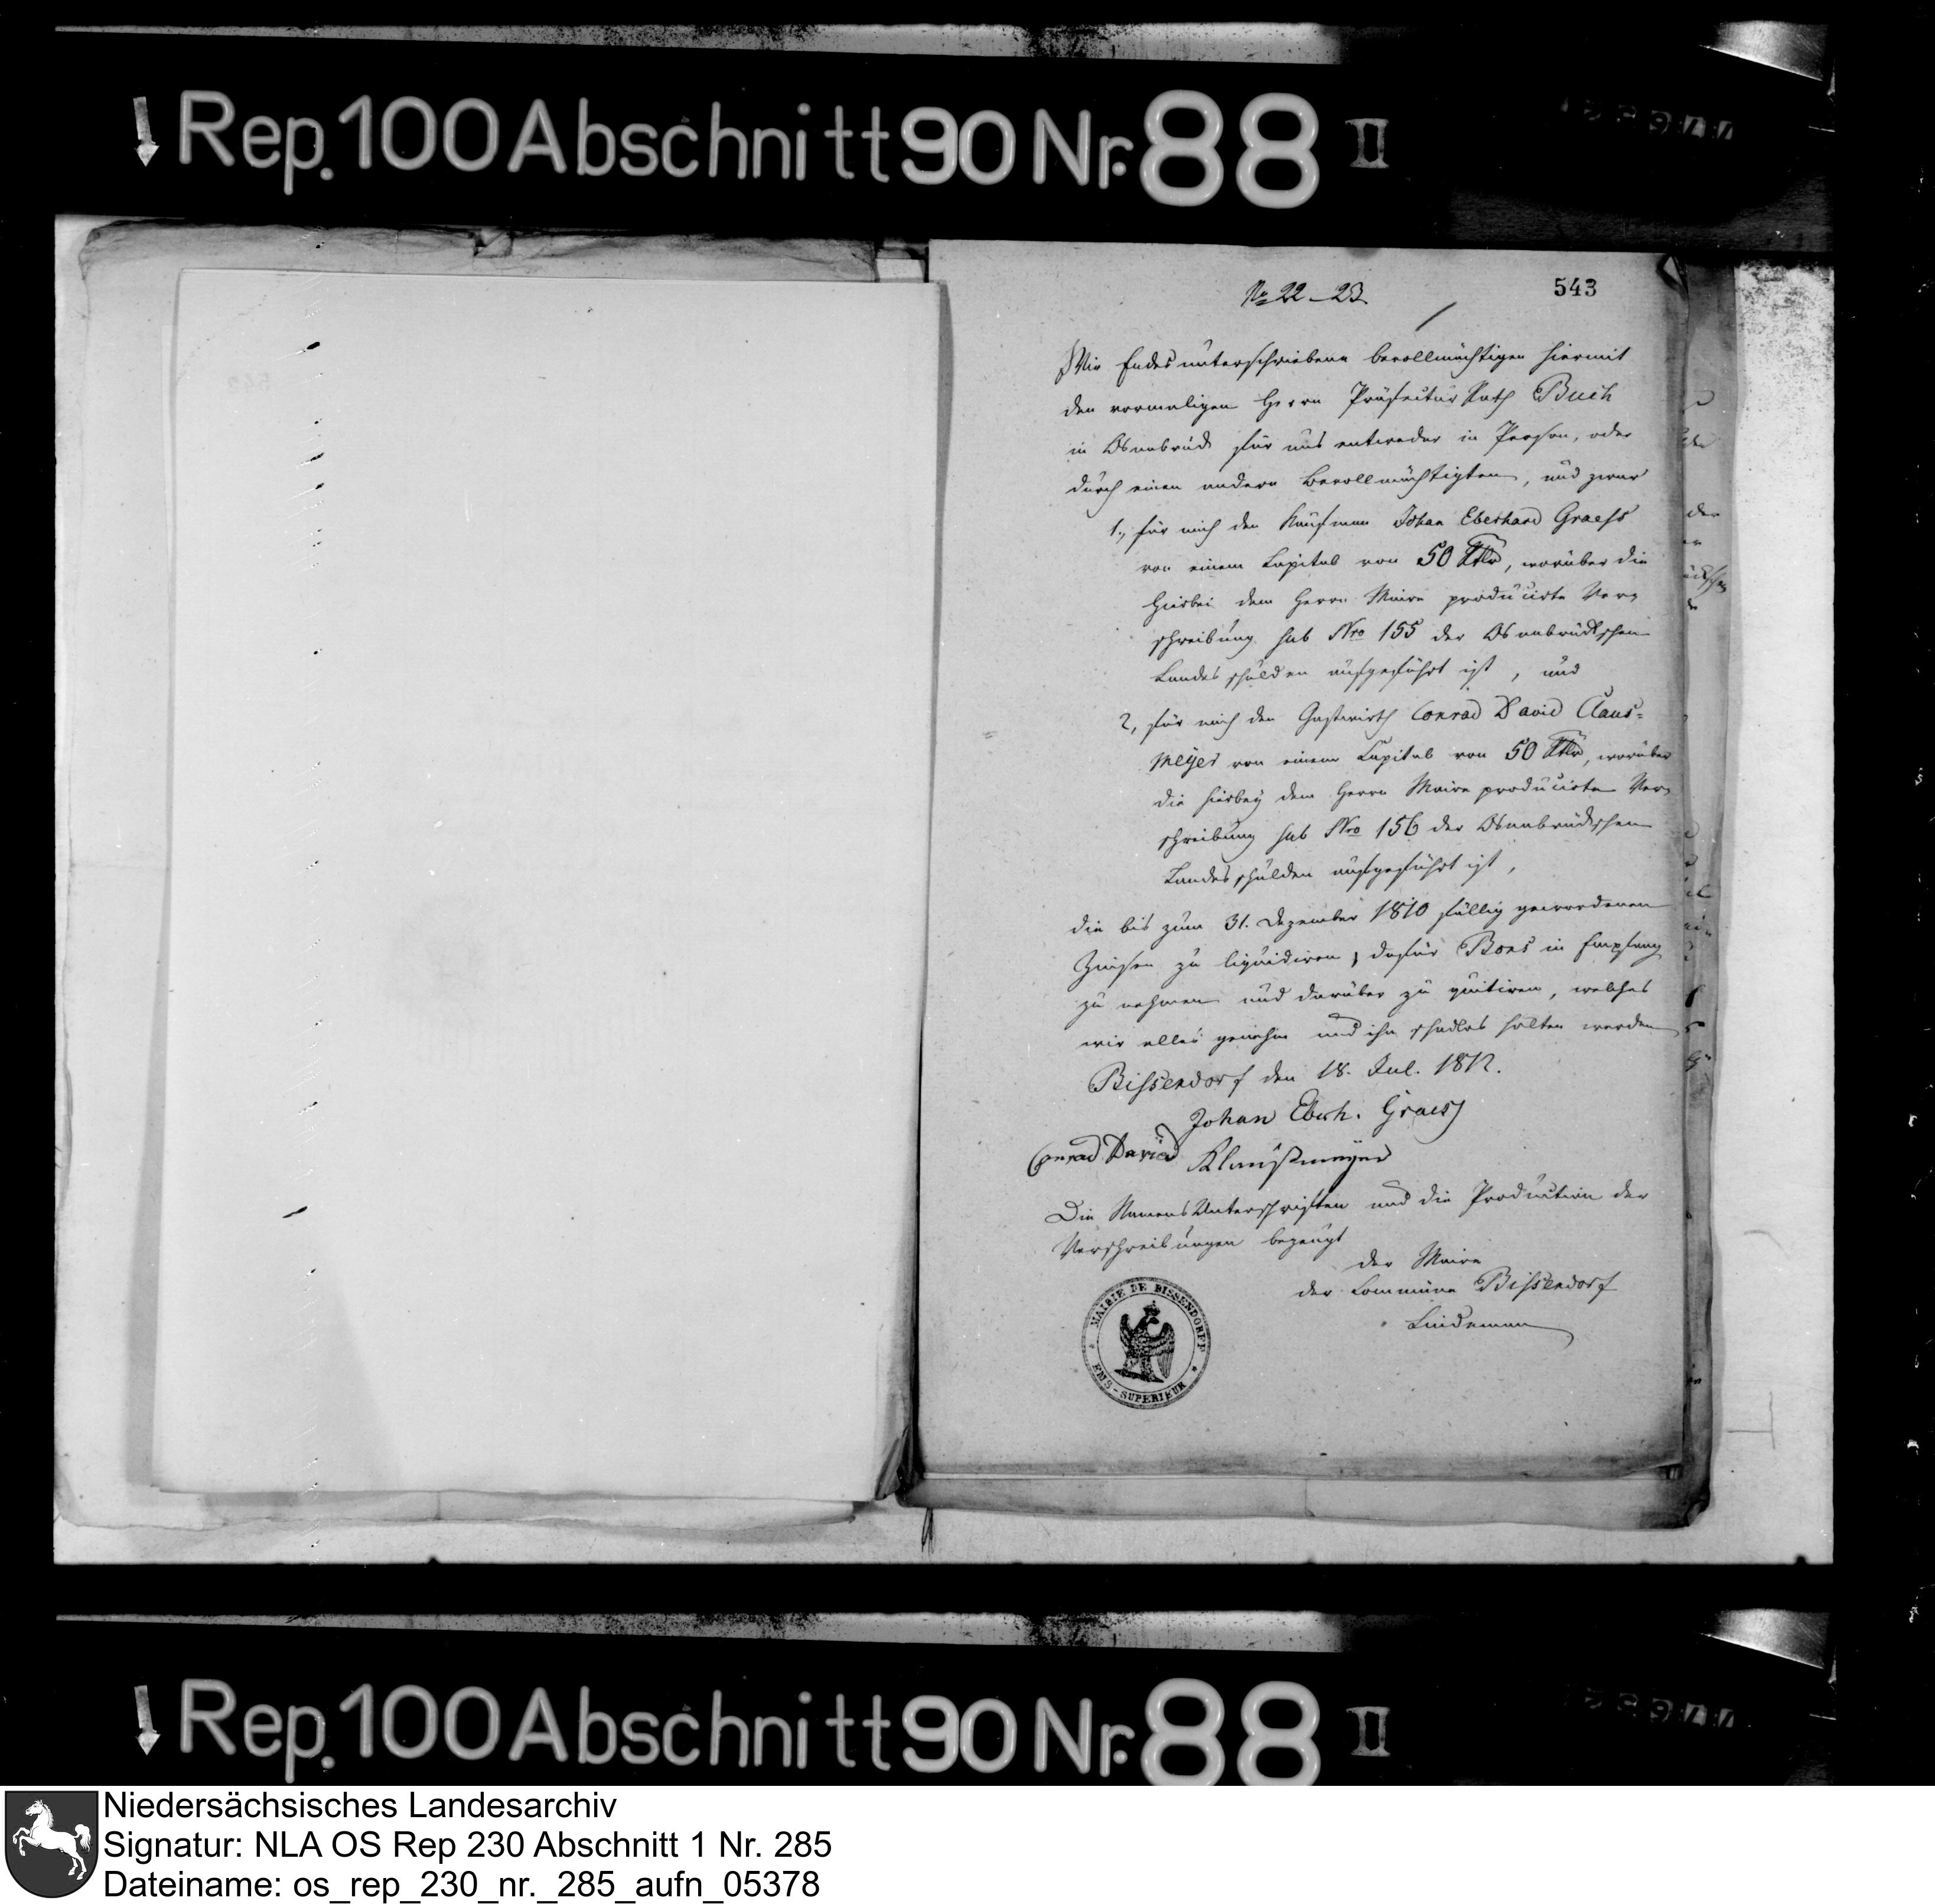 Rep. 100 Abschnitt 90 Nr. 88 II
No 22-23.
543
Wir Endes unterschriebene bevollmächtigen hiermit
den vormaligen Herrn Präfectur Rath Buch
in Osnabrück für uns entweder in Person, oder
durch einen andern Bevollmächtigten, und zwar
1., für mich den Kaufman Johan Eberhard Graefs
von einem Capital von 50 Rtlr, worüber die
hierbei dem Herrn Maire producirte Ver-
schreibung sub Nro 155 der Osnabrückschen
Landesschulden aufgeführt ist, und
2, für mich den Gastwirth Conrad David Claus=
meyer von einem Capital von 50 Rtlr, worüber
die hierbey dem Herrn Maire producirte Ver-
schreibung sub Nro 156 der Osnabrückschen
Landesschulden aufgeführt ist,
die bis zum 31. Dezember 1810 fällig gewordenen
Zinsen zu liquidiren, dafür Bons in Empfang
zu nehmen und darüber zu quitiren, welches
wir alles genehm und ihn schadlos halten werden
Bissendorf den 18. Jul. 1812.
Johan Eberh. Graefs
Conrad David Klausmeyer
Die Namens Unterschriften und die Production der
Verschreibungen bezeugt
der Maire
der Commüne Bissendorf
Lindeman
MAIRIE DE BISSENDORFF
EMS-SUPERIEUR
Rep. 100 Abschnitt 90 Nr. 88 II
Niedersächsisches Landesarchiv
Signatur: NLA OS Rep 230 Abschnitt 1 Nr. 285
Dateiname: os_rep_230_nr._285_aufn_05378